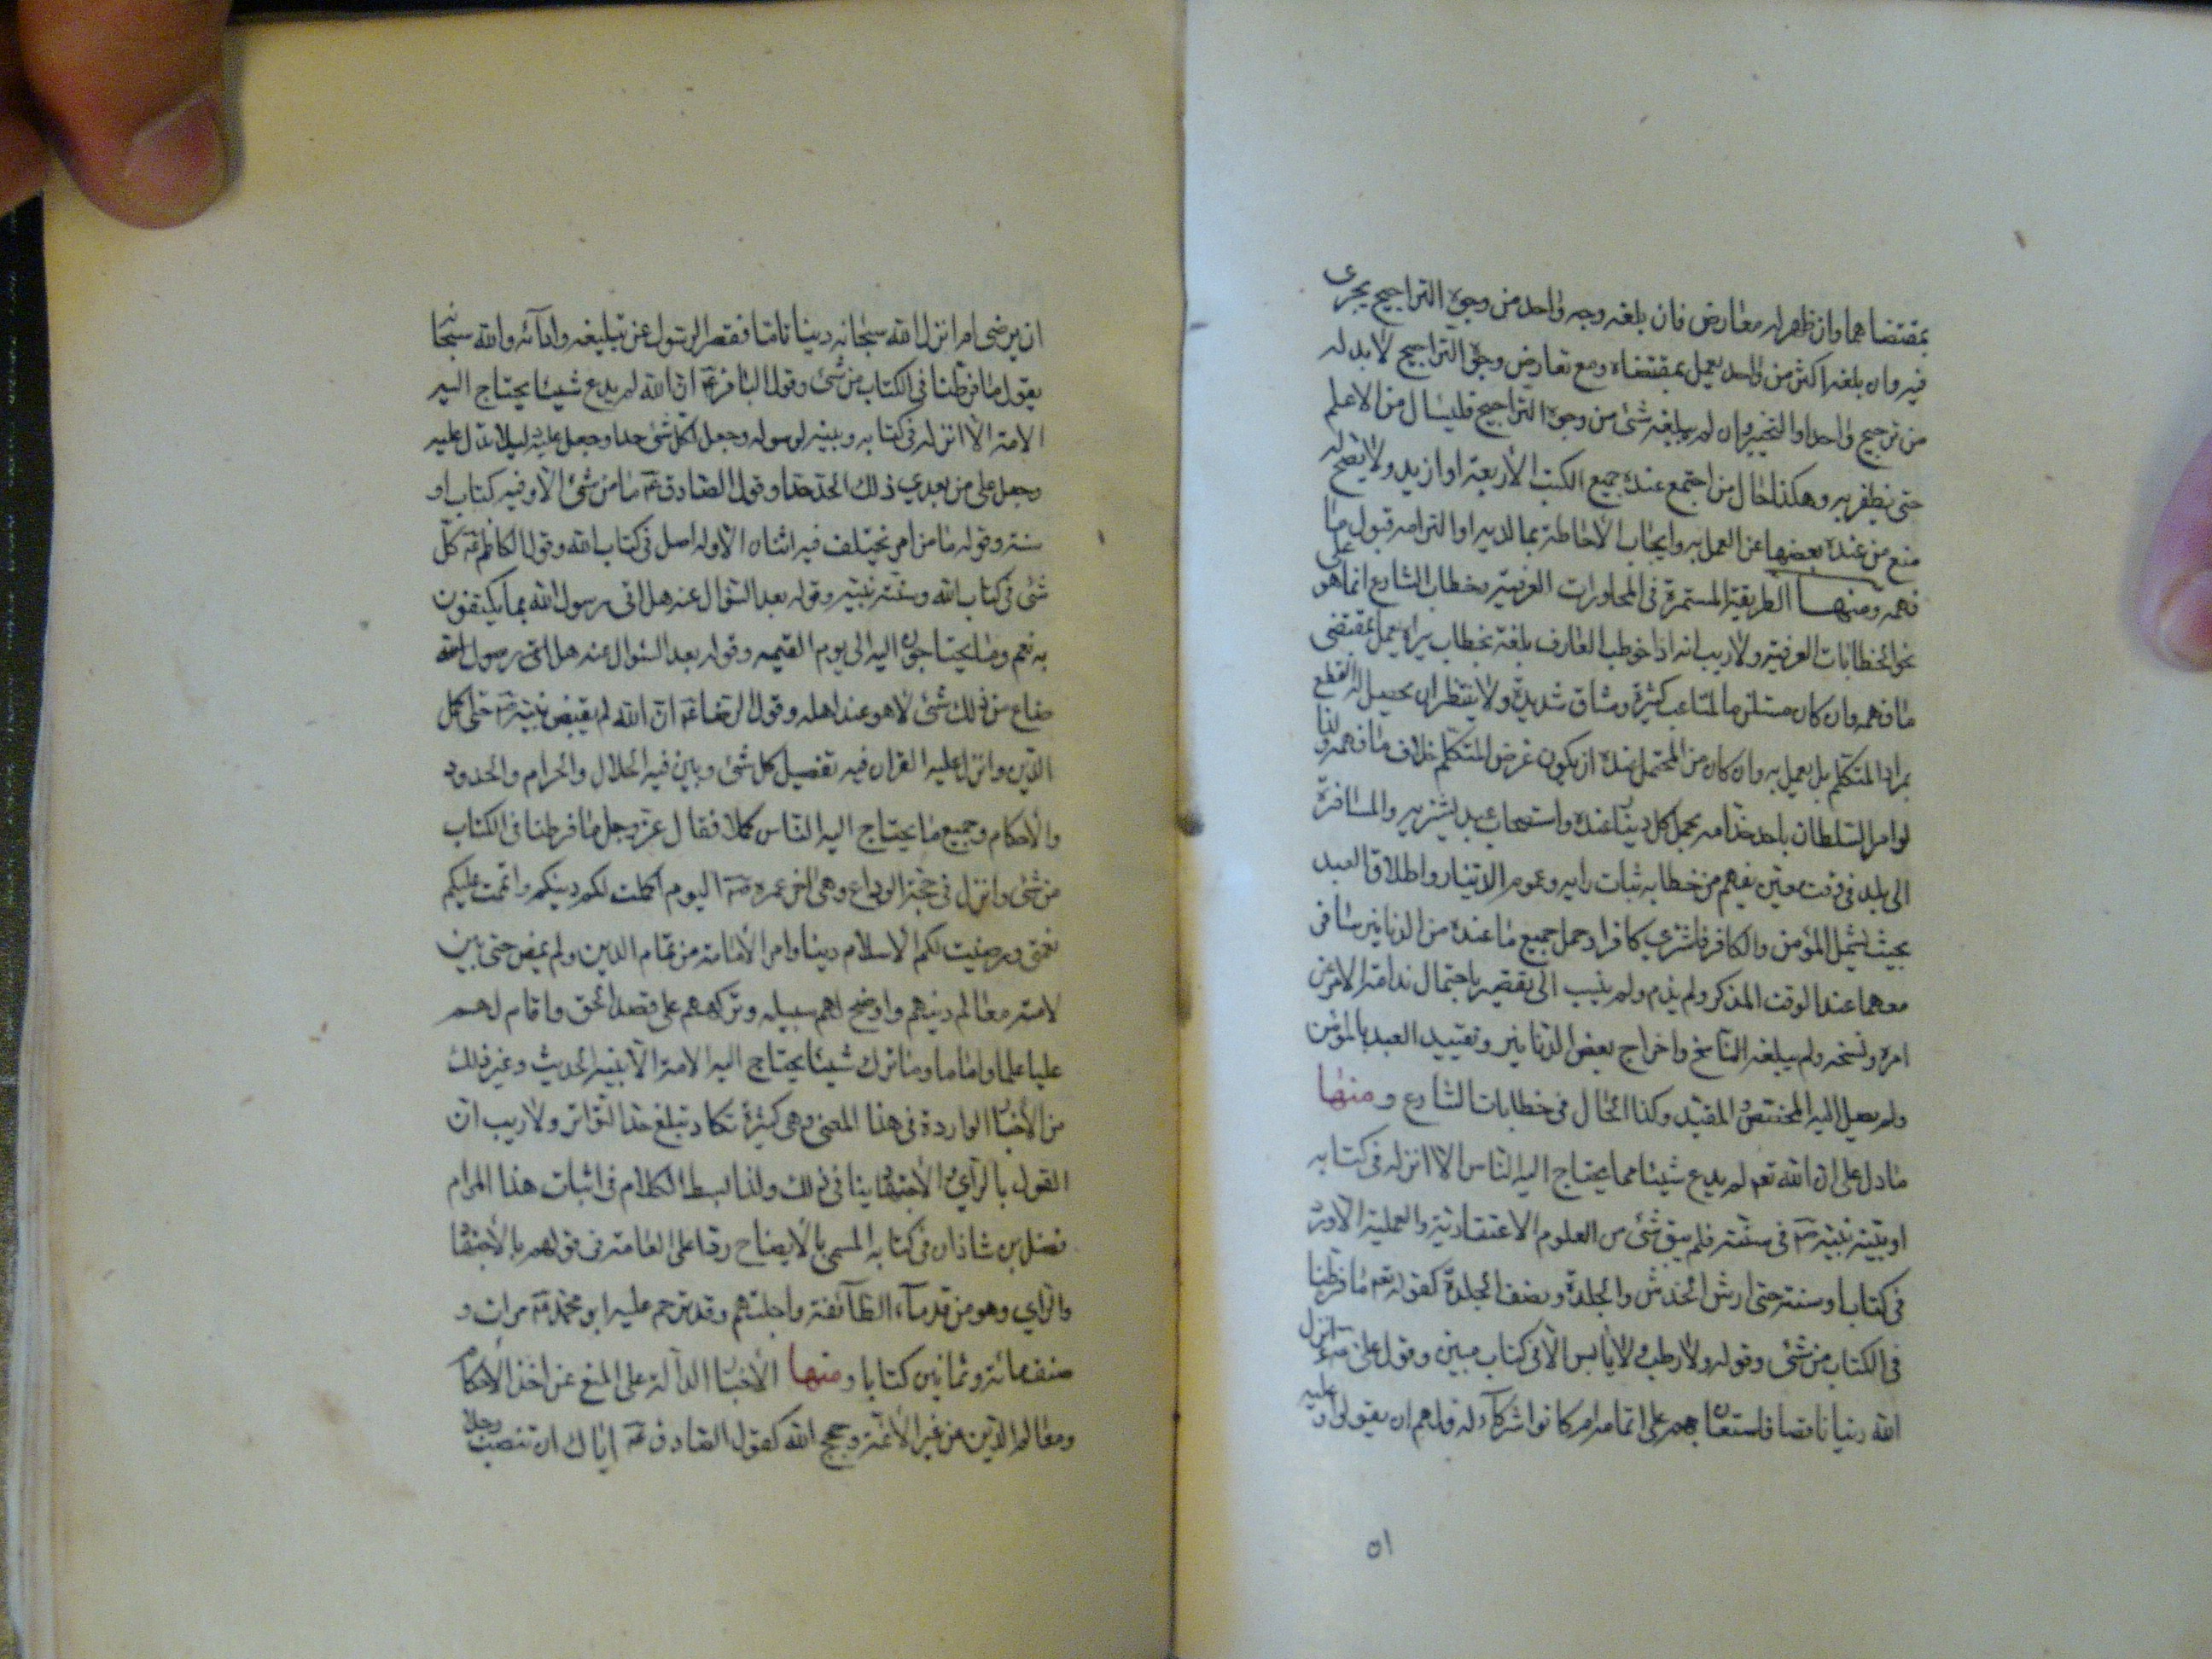 بمقتضاهما وان ظهر له معارض فان بلغه وجه واحد من وجوه التراجيح يجرى
فيه وان بلغه اكثر من واحد يعمل بمقتضاه ومع تعارض وجوه التراجيح لا بد له
من ترجيح واحد او التخيير وان لم يبلغه شئ من وجوه التراجيح فليسال من الاعلم
حتى يظفر به وهكذا حال من اجتمع عنده جميع الكتب الاربعة او ازيد ولا يصح له
منع من عنده بعضها عن العمل به وايجاب الاحاطة بما لديه او التزامه قبول ما
فهمه ومنها الطريقة المستمرة فى المحاورات العرفية وخطاب الشارع انما هو على
نحو الخطابات العرفية ولا ريب انه اذا خوطب العارف بلغة بخطاب يراه يعمل بمقتضى
ما فهمه وان كان مستلزما لمتاعب كثيرة ومشاق شديدة ولا ينتظر ان يحصل له القطع
بمراد المتكلم بل يعمل به وان كان من المحتمل عنده ان يكون غرض المتكلم خلاف ما فهمه ولذا
لو امر السلطان باحد خدامه بحمل كل دينار عنده واستصحاب عبد يشتريه والمسافرة
الى بلد فى وقت معين يفهم من خطابه ثبات رايه وعموم الدينار واطلاق العبد
بحيث يشمل المؤمن والكافر فاشترى كافرا وحمل جميع ما عنده من الدنانير سافر
معهما عند الوقت المذكر ولم يذم ولم ينسب الى تقصير باحتمال ندامة الامر عن
امره ونسخه ولم يبلغه الناسخ واخراج بعض الدنانير وتقييد العبد بالمؤمن
ولم يصل اليه المخصص والمقيد وكذا الحال فى خطابات الشارع ومنها
ما دل على ان الله تعم لم يدع شيئا مما يحتاج اليه الناس الا انزله فى كتابه
او بينه نبيه ص فى سنته فلم يبق شئ من العلوم الاعتقادية والعملية الا ورد
فى كتاب او سنة حتى ارش الخدش والجلدة ونصف الجلدة كقوله تعم ما فرطنا
فى الكتاب من شئ وقوله ولا رطب ولا يابس الا فى كتاب مبين وقول على ع ام انزل
الله دينا ناقصا فاستعان بهم على اتمامه ام كانوا شركاء له فلهم ان يقولوا وعليه
٥١
ان يرضى ام انزل الله سبحانه دينا تاما فقصر الرسول عن تبليغه وادائه والله سبحانه
يقول ما فرطنا فى الكتاب من شئ وقول الباقر ع ان الله لم يدع شيئا يحتاج اليه
الامة الا انزله فى كتابه وبينه لرسوله وجعل لكل شئ حدا وجعل عليه دليلا يدل عليه
وجعل على من تعدى ذلك الحد حدا وقول الصادق ع ما من شئ الا وفيه كتاب او
سنة وقوله ما من امر يختلف فيه اثنان الا وله اصل فى كتاب الله وقول الكاظم ع كل
شئ فى كتاب الله وسنة نبيه وقوله بعد السؤال عنه هل اتى رسول الله بما يكتفون
به نعم وما يحتاجون اليه الى يوم القيمه وقوله بعد السئوال عنه هل اتى رسول الله
ضاع من ذلك شئ لا هو عند اهله وقول الرضا ع ان الله لم يقبض نبيه ص حتى اكمل
الدين وانزل عليه القران فيه تفصيل كل شئ وبين فيه الحلال والحرام والحدود
والاحكام وجميع ما يحتاج اليه الناس كملا فقال عز وجل ما فرطنا فى الكتاب
من شئ وانزل فى حجة الوداع وهى اخر عمره ص اليوم اكملت لكم دينكم واتممت عليكم
نعمتى ورضيت لكم الاسلام دينا وامر الامامة من تمام الدين ولم يمض حتى بين
لامته معالم دينهم واوضح لهم سبيله وتركهم على قصد الحق واقام لهم
عليا علما واماما وما ترك شيئا يحتاج اليه الامة الا بينه الحديث وغير ذلك
من الاخبار الواردة فى هذا المعنى وهى كثيرة تكاد تبلغ حد التواتر ولا ريب ان
القول بالراى والاجتهاد ينافى ذلك ولذا بسط الكلام فى اثبات هذا المرام
فضل بن شاذان فى كتابه المسمى بالايضاح ردا على العامة فى قولهم بالاجتهاد
والراى وهو من قدماء الطائفة واجلتهم وقد ترحم عليه ابو محمد ع مرات و
صنف مائة وثمانين كتابا ومنها الاخبار الدالة على المنع عن اخذ الاحكام
ومعالم الدين عن غير الائمة وحجج الله كقول الصادق ع اياك ان تنصب رجلا